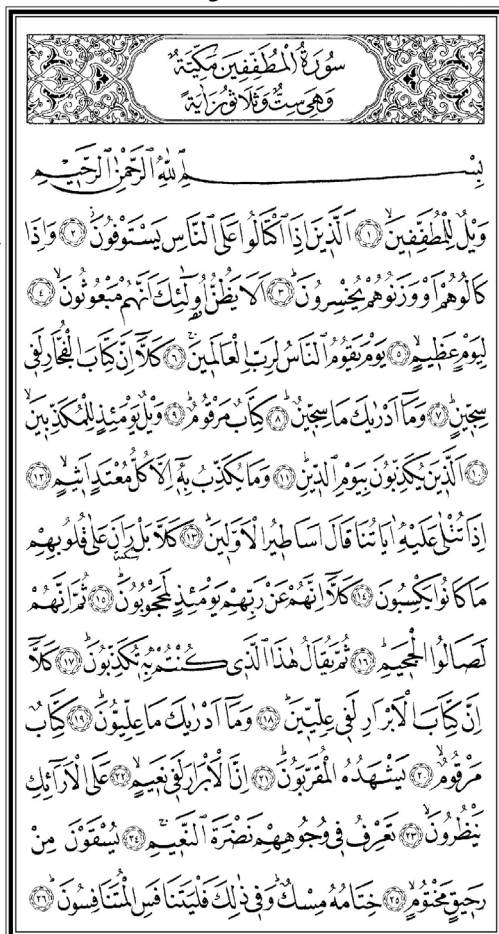 سُورَةُ الْمُطَفِّفِينَ مَكِّيَّةٌ
وَهِيَ سِتٌّ وَثَلَاثُونَ اٰيَةً
بِسْمِ اللّٰهِ الرَّحْمٰنِ الرَّحِيمِ
وَيْلٌ لِلْمُطَفِّفِينَۙ ﴿١﴾ اَلَّذِينَ اِذَا اكْتَالُوا عَلَى النَّاسِ يَسْتَوْفُونَۘ ﴿٢﴾ وَاِذَا
كَالُوهُمْ اَوْ وَزَنُوهُمْ يُخْسِرُونَۜ ﴿٣﴾ اَلَا يَظُنُّ اُو۬لٰٓئِكَ اَنَّهُمْ مَبْعُوثُونَۙ ﴿٤﴾
لِيَوْمٍ عَظِيمٍۙ ﴿٥﴾ يَوْمَ يَقُومُ النَّاسُ لِرَبِّ الْعَالَمِينَۜ ﴿٦﴾ كَلَّٓا اِنَّ كِتَابَ الْفُجَّارِ لَفِي
سِجِّينٍۜ ﴿٧﴾ وَمَٓا اَدْرٰيكَ مَا سِجِّينٌۜ ﴿٨﴾ كِتَابٌ مَرْقُومٌۜ ﴿٩﴾ وَيْلٌ يَوْمَئِذٍ لِلْمُكَذِّبِينَۙ
﴿١٠﴾ اَلَّذِينَ يُكَذِّبُونَ بِيَوْمِ الدِّينِۜ ﴿١١﴾ وَمَا يُكَذِّبُ بِهٖٓ اِلَّا كُلُّ مُعْتَدٍ اَثِيمٍۙ ﴿١٢﴾
اِذَا تُتْلٰى عَلَيْهِ اٰيَاتُنَا قَالَ اَسَاطِيرُ الْاَوَّلِينَۜ ﴿١٣﴾ كَلَّا بَلْ رَانَ عَلٰى قُلُوبِهِمْ
مَا كَانُوا يَكْسِبُونَ ﴿١٤﴾ كَلَّٓا اِنَّهُمْ عَنْ رَبِّهِمْ يَوْمَئِذٍ لَمَحْجُوبُونَۜ ﴿١٥﴾ ثُمَّ اِنَّهُمْ
لَصَالُوا الْجَحِيمِۜ ﴿١٦﴾ ثُمَّ يُقَالُ هٰذَا الَّذِي كُنْتُمْ بِهٖ تُكَذِّبُونَۜ ﴿١٧﴾ كَلَّٓا
اِنَّ كِتَابَ الْاَبْرَارِ لَفِي عِلِّيِّينَۜ ﴿١٨﴾ وَمَٓا اَدْرٰيكَ مَا عِلِّيُّونَۜ ﴿١٩﴾ كِتَابٌ
مَرْقُومٌۙ ﴿٢٠﴾ يَشْهَدُهُ الْمُقَرَّبُونَۜ ﴿٢١﴾ اِنَّ الْاَبْرَارَ لَفِي نَعِيمٍۙ ﴿٢٢﴾ عَلَى الْاَرَٓائِكِ
يَنْظُرُونَۙ ﴿٢٣﴾ تَعْرِفُ فِي وُجُوهِهِمْ نَضْرَةَ النَّعِيمِۚ ﴿٢٤﴾ يُسْقَوْنَ مِنْ
رَحِيقٍ مَخْتُومٍۙ ﴿٢٥﴾ خِتَامُهُ مِسْكٌۜ وَفِي ذٰلِكَ فَلْيَتَنَافَسِ الْمُتَنَافِسُونَۜ ﴿٢٦﴾